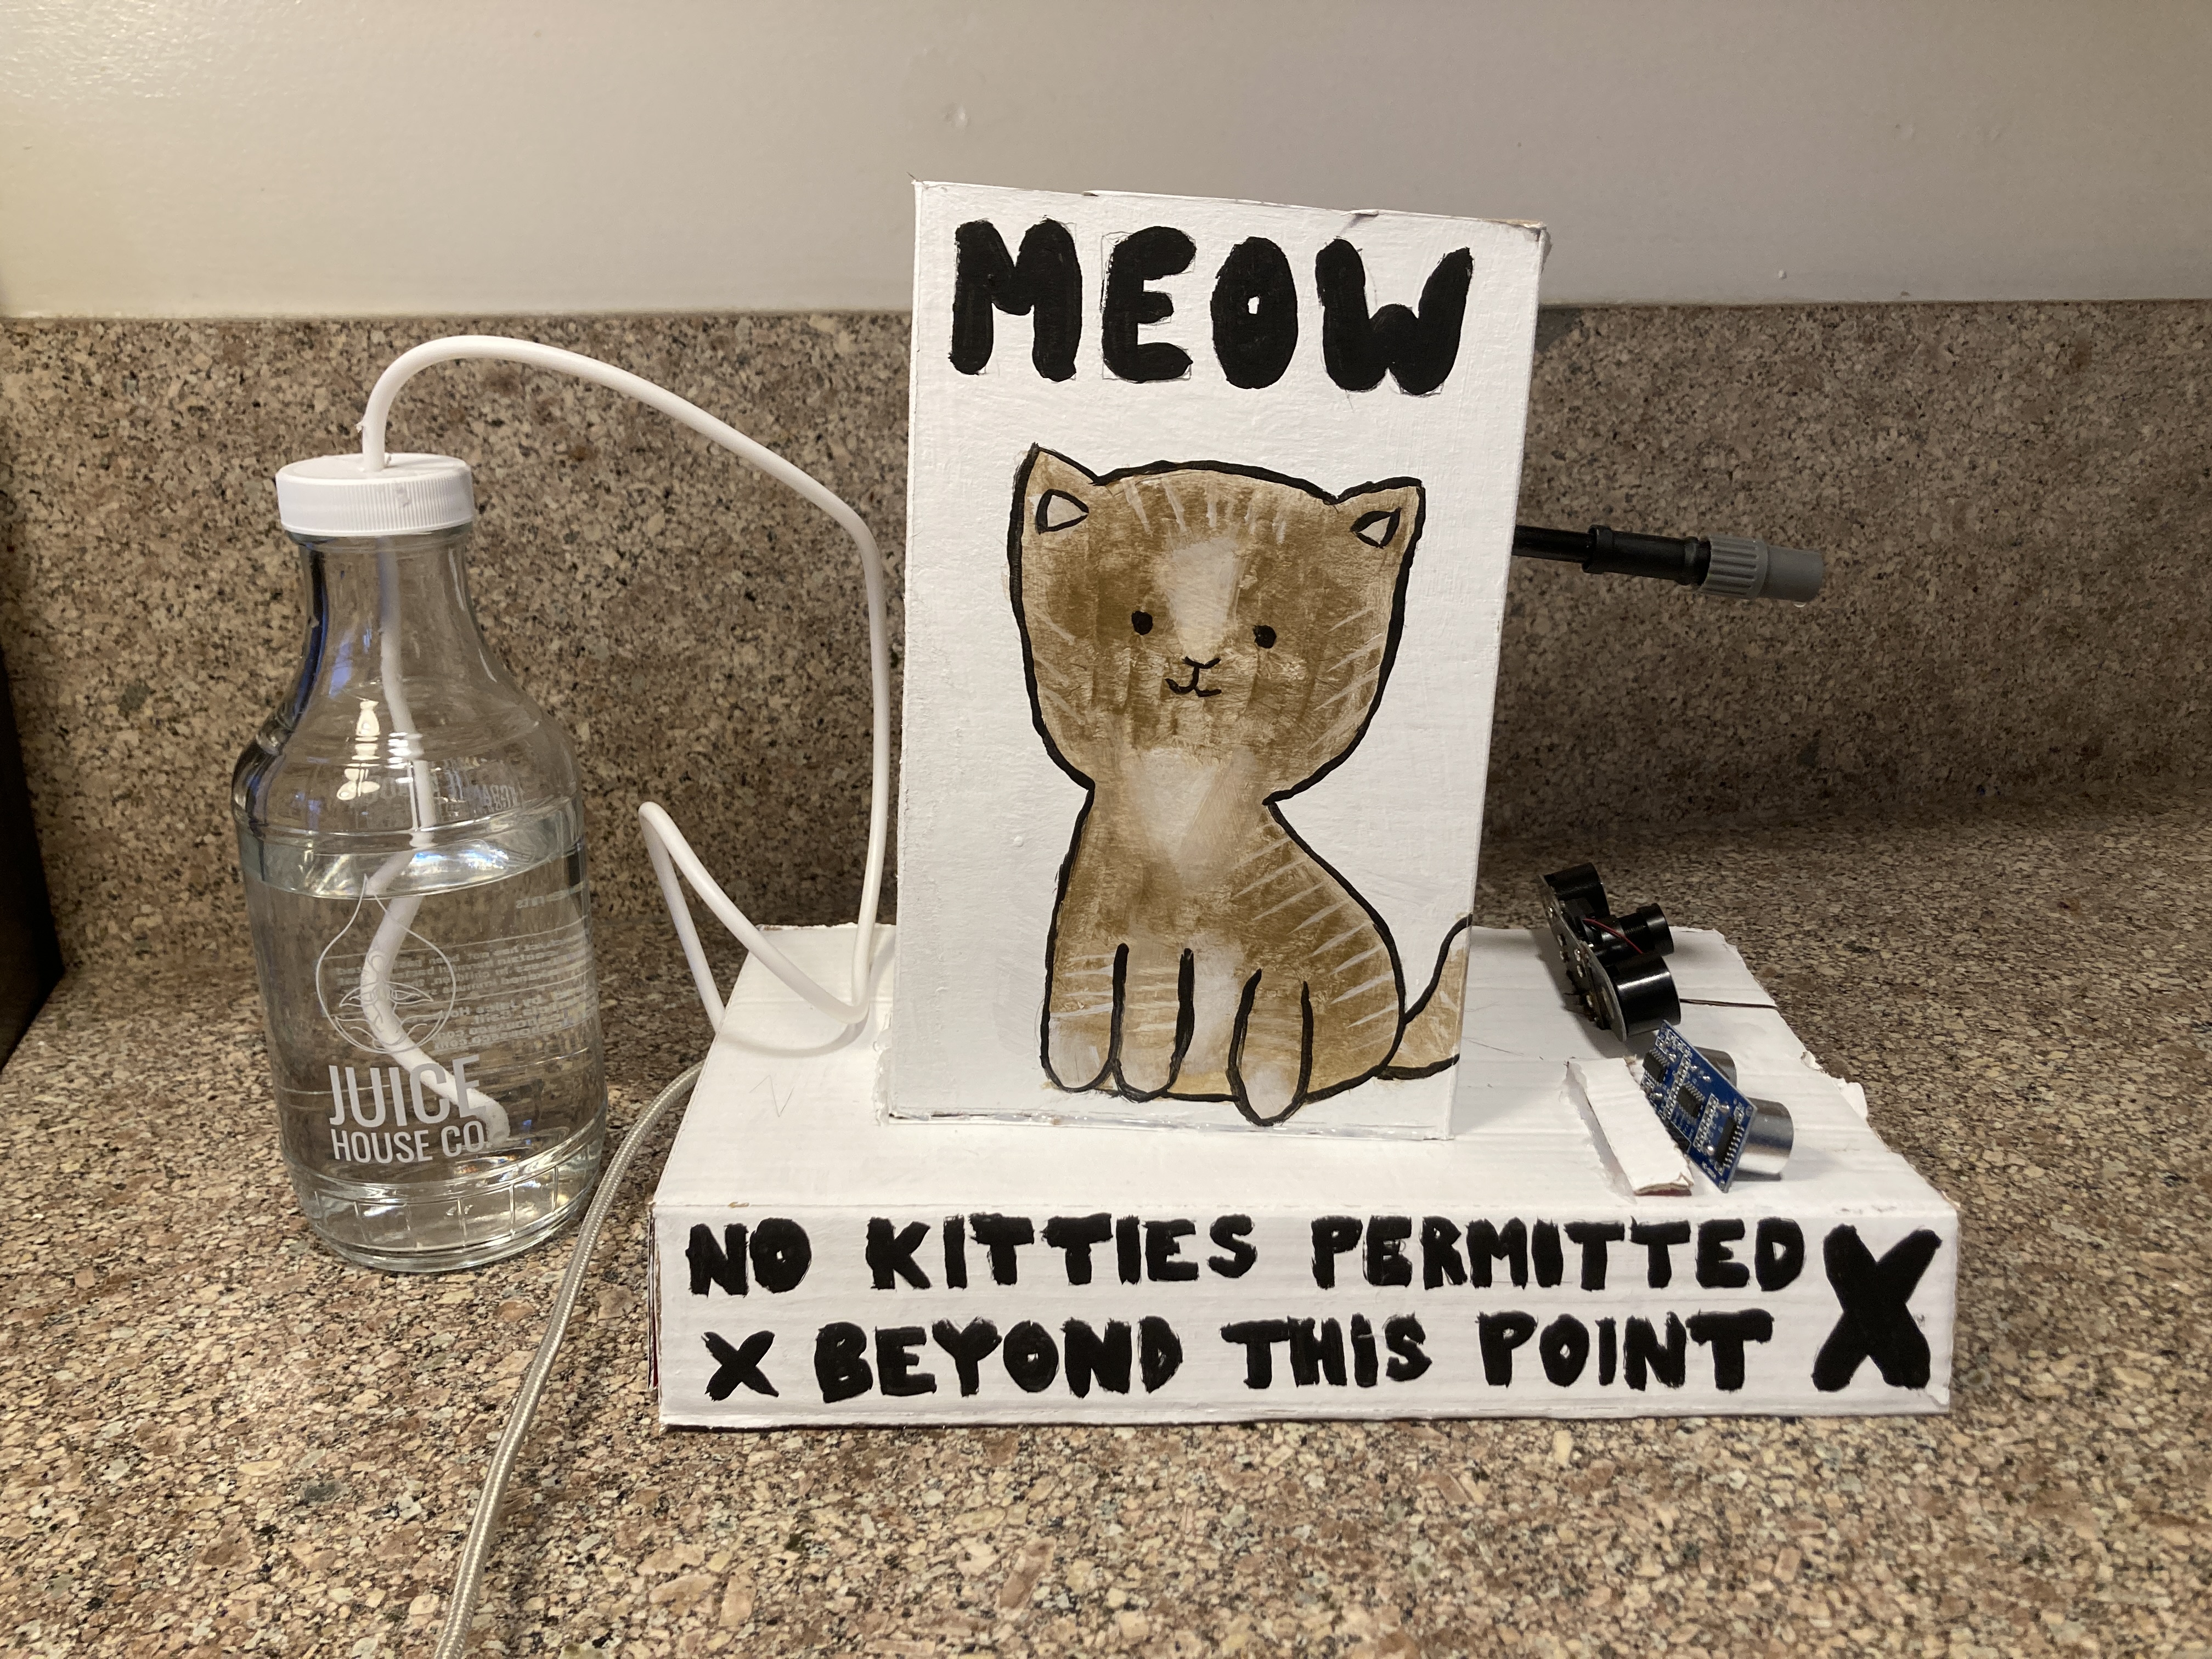 MEOW
JUICE
HOUSE CO.
NO KITTIES PERMITTED X
X BEYOND THIS POINT